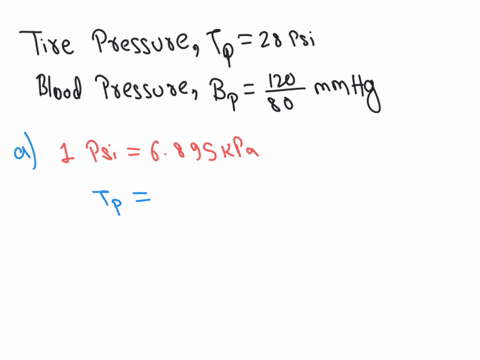 Tire Pressure, Tp = 28 Psi
Blood Pressure, Bp = 120/80 mmHg
a) 1 Psi = 6.895 kPa
Tp =